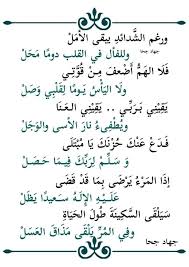 ورغم الشَّدائدِ يبقى الأمَلْ
جهاد جحا
وللفألِ في القلبِ دومًا مَحَلْ
فَلَا الهَمُّ أَضْعَفَ مِنْ قُوَّتِي
ولا اليَأسُ يَومًا لِقَلْبِي وَصَلْ
يَقِيْنِي بِرَبِّي .. يَقِيْنِي العَنَا
ويُطْفِىءُ نارَ الأسى والوَجَلْ
فَدَعْ عَنْكَ حُزْنَكَ يَا مُبْتَلَى
و سَلِّمْ لِرَبِّكَ فِيْمَا حَصَلْ
إِذَا المَرْءُ يَرْضَى بِمَا قَدْ قَضَى
عَلَيْهِ الإِلَهُ سَعِيدًا يَظَلْ
سَيَلْقَى السَّكِيْنَةَ طُولَ الحَيَاةِ
وفِي المُرِّ يَلْقَى مَذَاقَ العَسَلْ
جهاد جحا